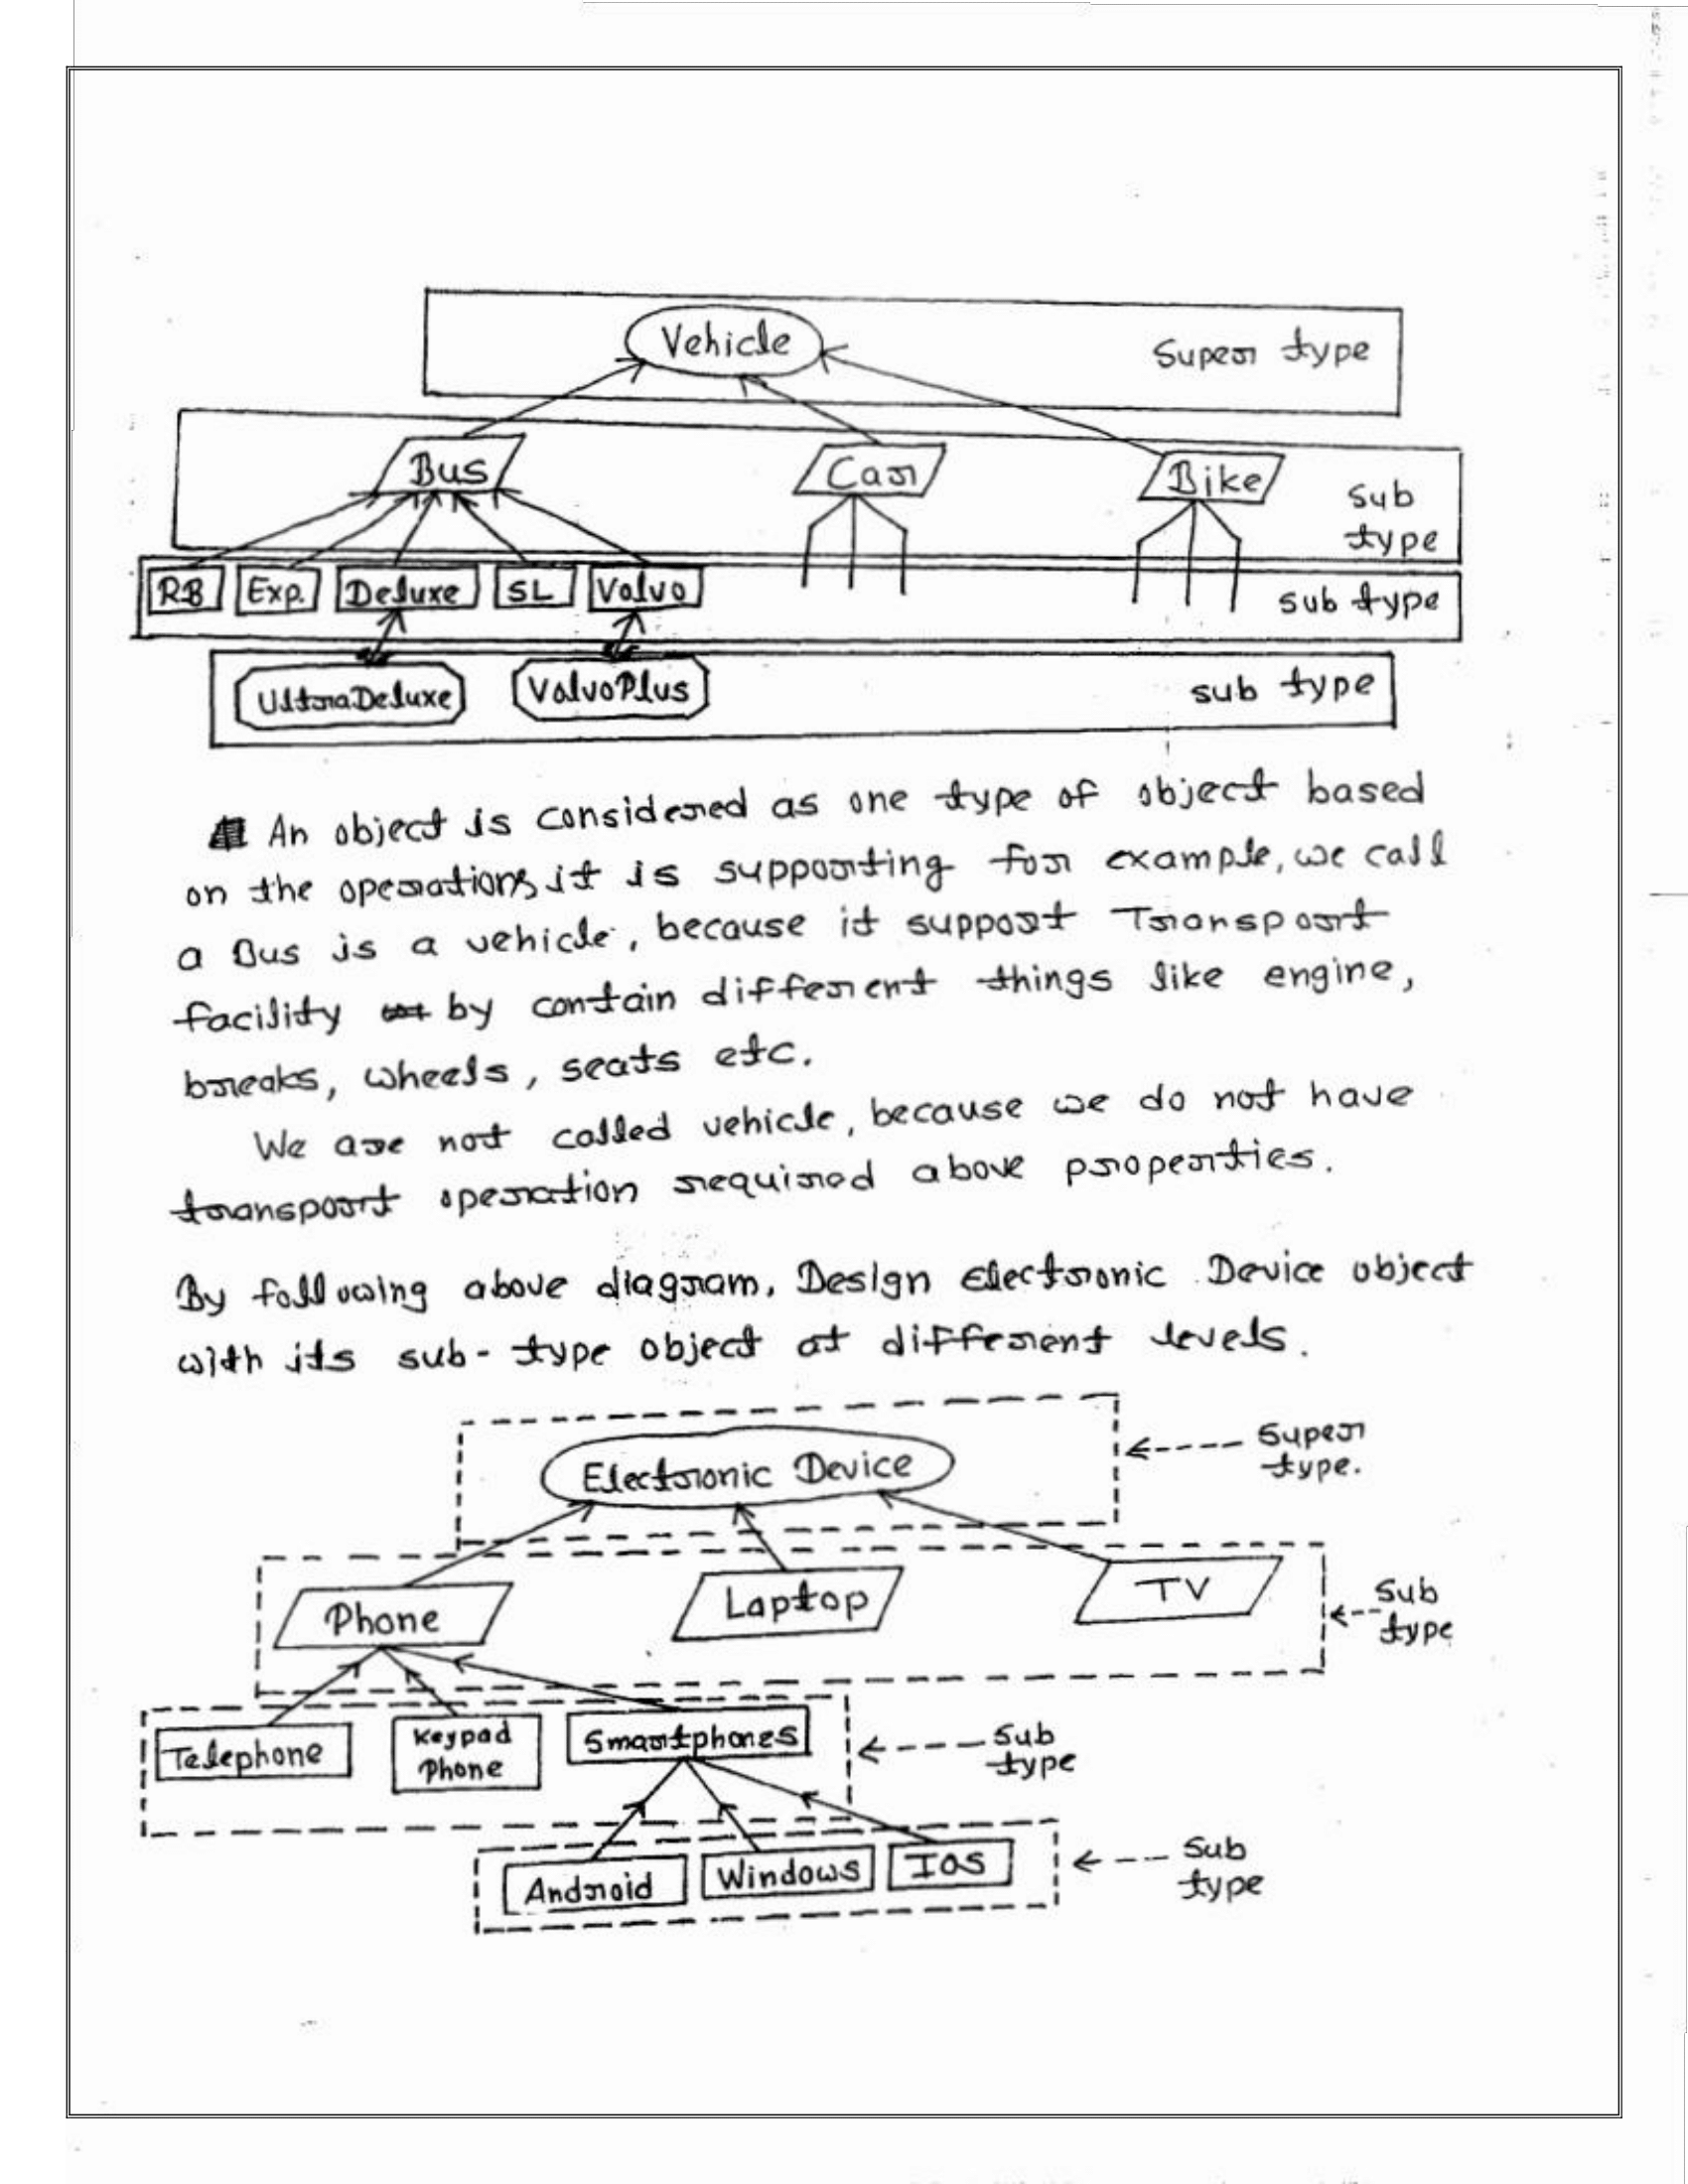 Vehicle
Super type
Bus
Car
Bike
Sub
type
RB
Exp.
Deluxe
SL
Volvo
sub type
UltraDeluxe
VolvoPlus
sub type
An object is considered as one type of object based
on the operations, it is supporting for example, we call
a Bus is a vehicle, because it support Transport
facility by contain different things like engine,
breaks, wheels, seats etc.
We are not called vehicle, because we do not have
transport operation required above properties.
By following above diagram, Design Electronic Device object
with its sub-type object at different levels.
Electronic Device
Super
type.
Phone
Laptop
TV
Sub
type
Telephone
Keypad
Phone
Smartphones
Sub
type
Android
Windows
IOS
Sub
type